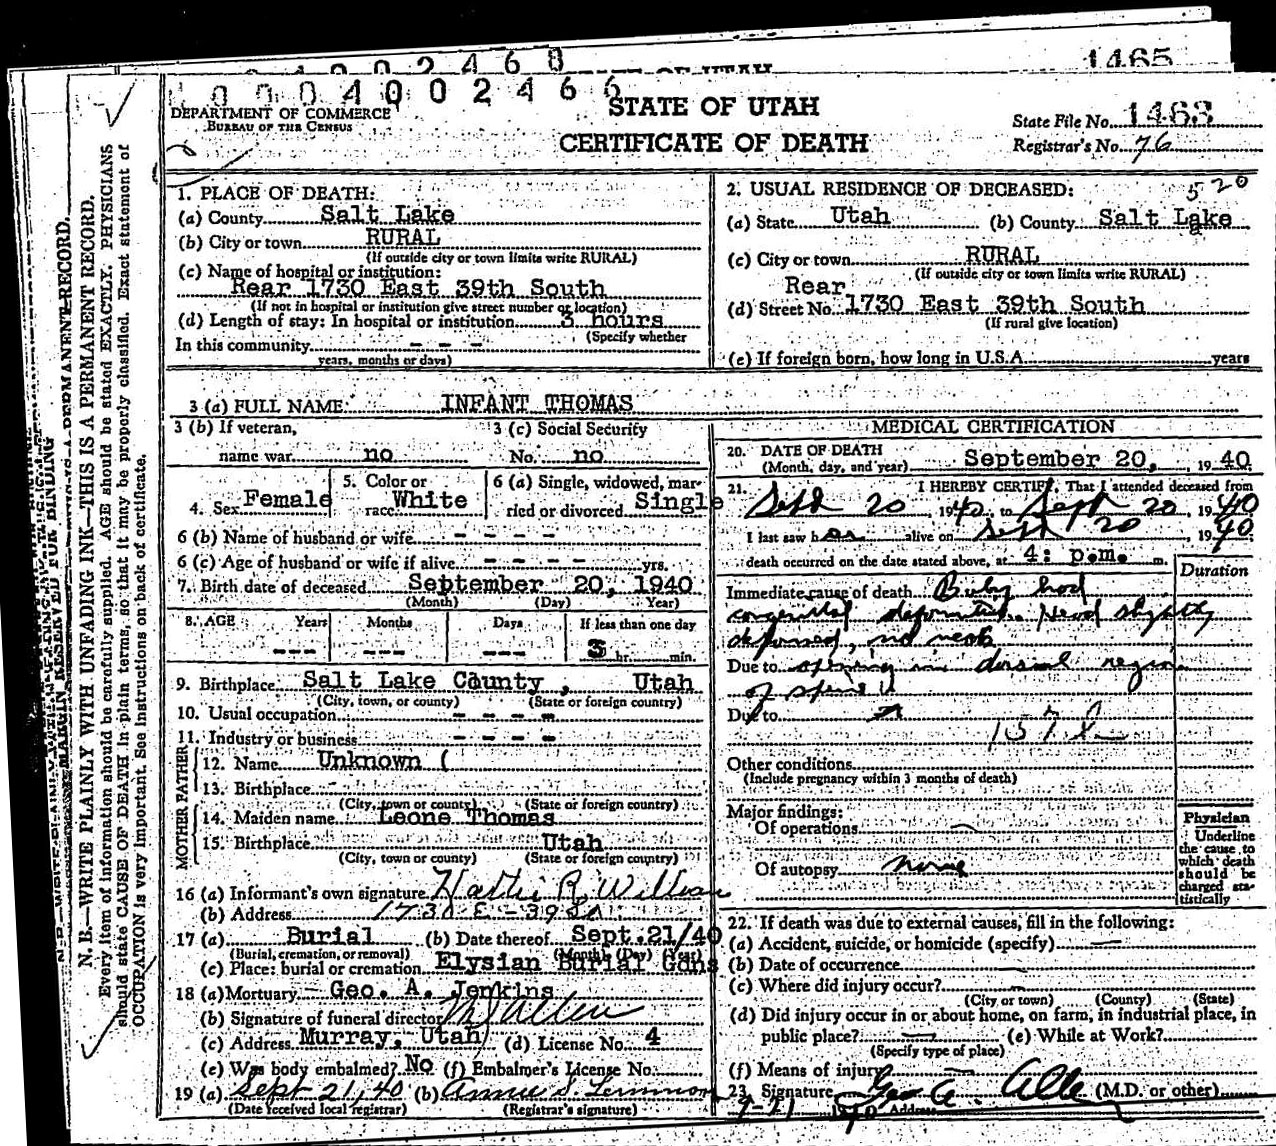 1465
0 0 0 4 0 0 2 4 6 6
DEPARTMENT OF COMMERCE
BUREAU OF THE CENSUS
STATE OF UTAH
CERTIFICATE OF DEATH
State File No. 1463
Registrar's No. 76
1. PLACE OF DEATH:
(a) County Salt Lake
(b) City or town RURAL
(If outside city or town limits write RURAL)
(c) Name of hospital or institution:
Rear 1730 East 39th South
(If not in hospital or institution give street number or location)
(d) Length of stay: In hospital or institution 3 hours
(Specify whether
In this community - - -
years, months or days)
2. USUAL RESIDENCE OF DECEASED: 520
(a) State Utah (b) County Salt Lake
(c) City or town RURAL
(If outside city or town limits write RURAL)
Rear
(d) Street No. 1730 East 39th South
(If rural give location)
(e) If foreign born, how long in U.S.A. years
3 (a) FULL NAME: INFANT THOMAS
3 (b) If veteran, 3 (c) Social Security
name war no No. no
4. Sex Female 5. Color or race White 6 (a) Single, widowed, married or divorced Single
6 (b) Name of husband or wife - - - -
6 (c) Age of husband or wife if alive - - - - yrs.
7. Birth date of deceased September 20, 1940
(Month) (Day) Year)
8. AGE Years Months Days If less than one day
--- --- --- 3 hr. min.
9. Birthplace Salt Lake County, Utah
(City, town, or county) (State or foreign country)
10. Usual occupation - - - -
11. Industry or business - - - -
FATHER
12. Name Unknown (
13. Birthplace
(City, town or county) (State or foreign country)
MOTHER
14. Maiden name Leone Thomas
15. Birthplace Utah
(City, town or county) (State or foreign country)
16 (a) Informant's own signature Hattie R.
(b) Address 1730 E - 39 So
17 (a) Burial (b) Date thereof Sept. 21/40
(Burial, cremation, or removal) (Month) (Day) (Year)
(c) Place: burial or cremation Elysian Burial Gdns
18 (a) Mortuary Geo. A. Jenkins
(b) Signature of funeral director
(c) Address Murray, Utah (d) License No. 4
(e) Was body embalmed? No (f) Embalmer's License No.
19 (a) Sept 21, 40 (b) Annie S. Lemmon
(Date received local registrar) (Registrar's signature)
MEDICAL CERTIFICATION
20. DATE OF DEATH
(Month, day, and year) September 20, 19 40
21. I HEREBY CERTIFY, That I attended deceased from
Sept 20, 1940, to Sept 20, 1940
I last saw her alive on Sept 20, 1940
death occurred on the date stated above, at 4: p.m. m.
Duration
Immediate cause of death Baby had
congenital deformities. Head slightly
deformed, no neck
Due to opening in dorsal region
of spine
Due to
157
Other conditions
(Include pregnancy within 3 months of death)
Major findings:
Of operations
Of autopsy none
Physician
Underline
the cause to
which death
should be
charged sta-
tistically
22. If death was due to external causes, fill in the following:
(a) Accident, suicide, or homicide (specify)
(b) Date of occurrence
(c) Where did injury occur?
(City or town) (County) (State)
(d) Did injury occur in or about home, on farm, in industrial place, in
public place? (e) While at Work?
(Specify type of place)
(f) Means of injury
23. Signature Geo A. (M.D. or other)
9-21 1940 Address
N. B.—WRITE PLAINLY WITH UNFADING INK—THIS IS A PERMANENT RECORD.
Every item of information should be carefully supplied. AGE should be stated EXACTLY. PHYSICIANS
should state CAUSE OF DEATH in plain terms, so that it may be properly classified. Exact statement of
OCCUPATION is very important. See instructions on back of certificate.
MARGIN RESERVED FOR BINDING